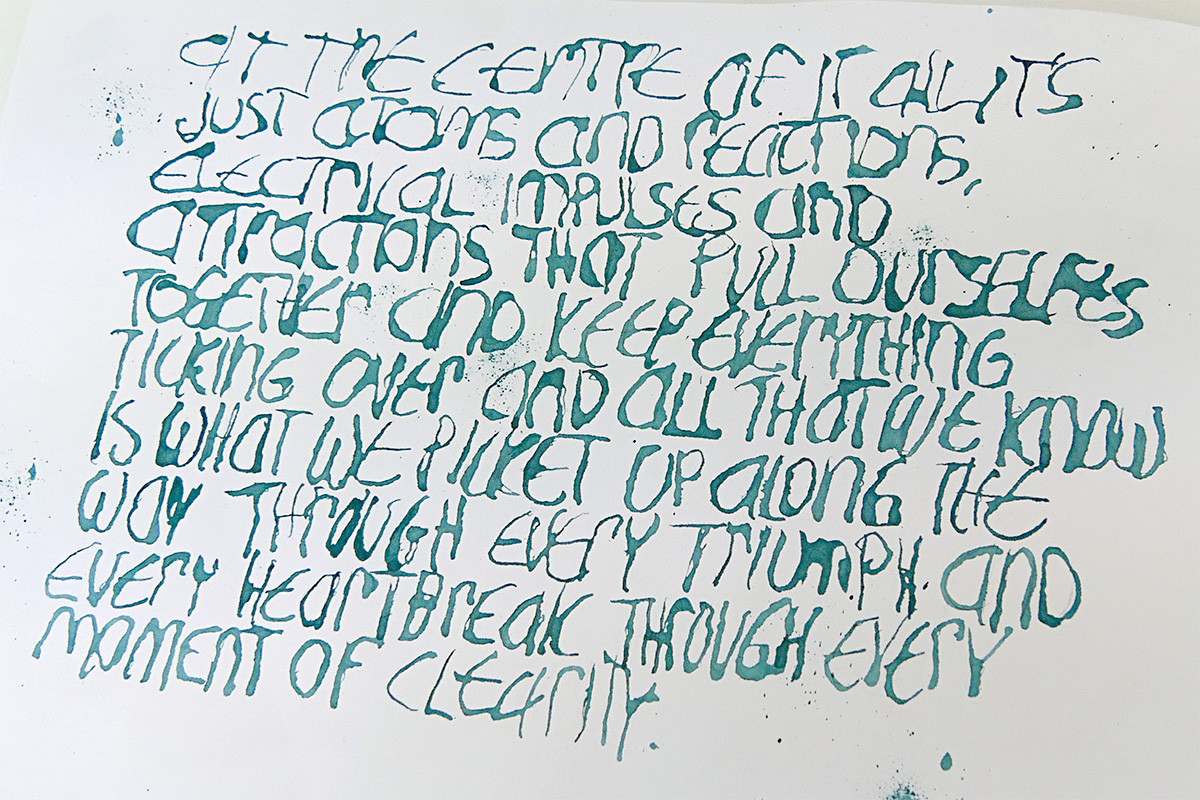 AT THE CENTRE OF IT ALL IT'S
JUST ATOMS AND REACTIONS,
ELECTRICAL IMPULSES AND
ATTRACTIONS THAT PULL OURSELFES
TOGETHER AND KEEP EVERYTHING
TICKING OVER AND ALL THAT WE KNOW
IS WHAT WE PICKET UP ALONG THE
WAY THROUGH EVERY TRIUMPH AND
EVERY HEARTBREAK THROUGH EVERY
MOMENT OF CLEARITY.